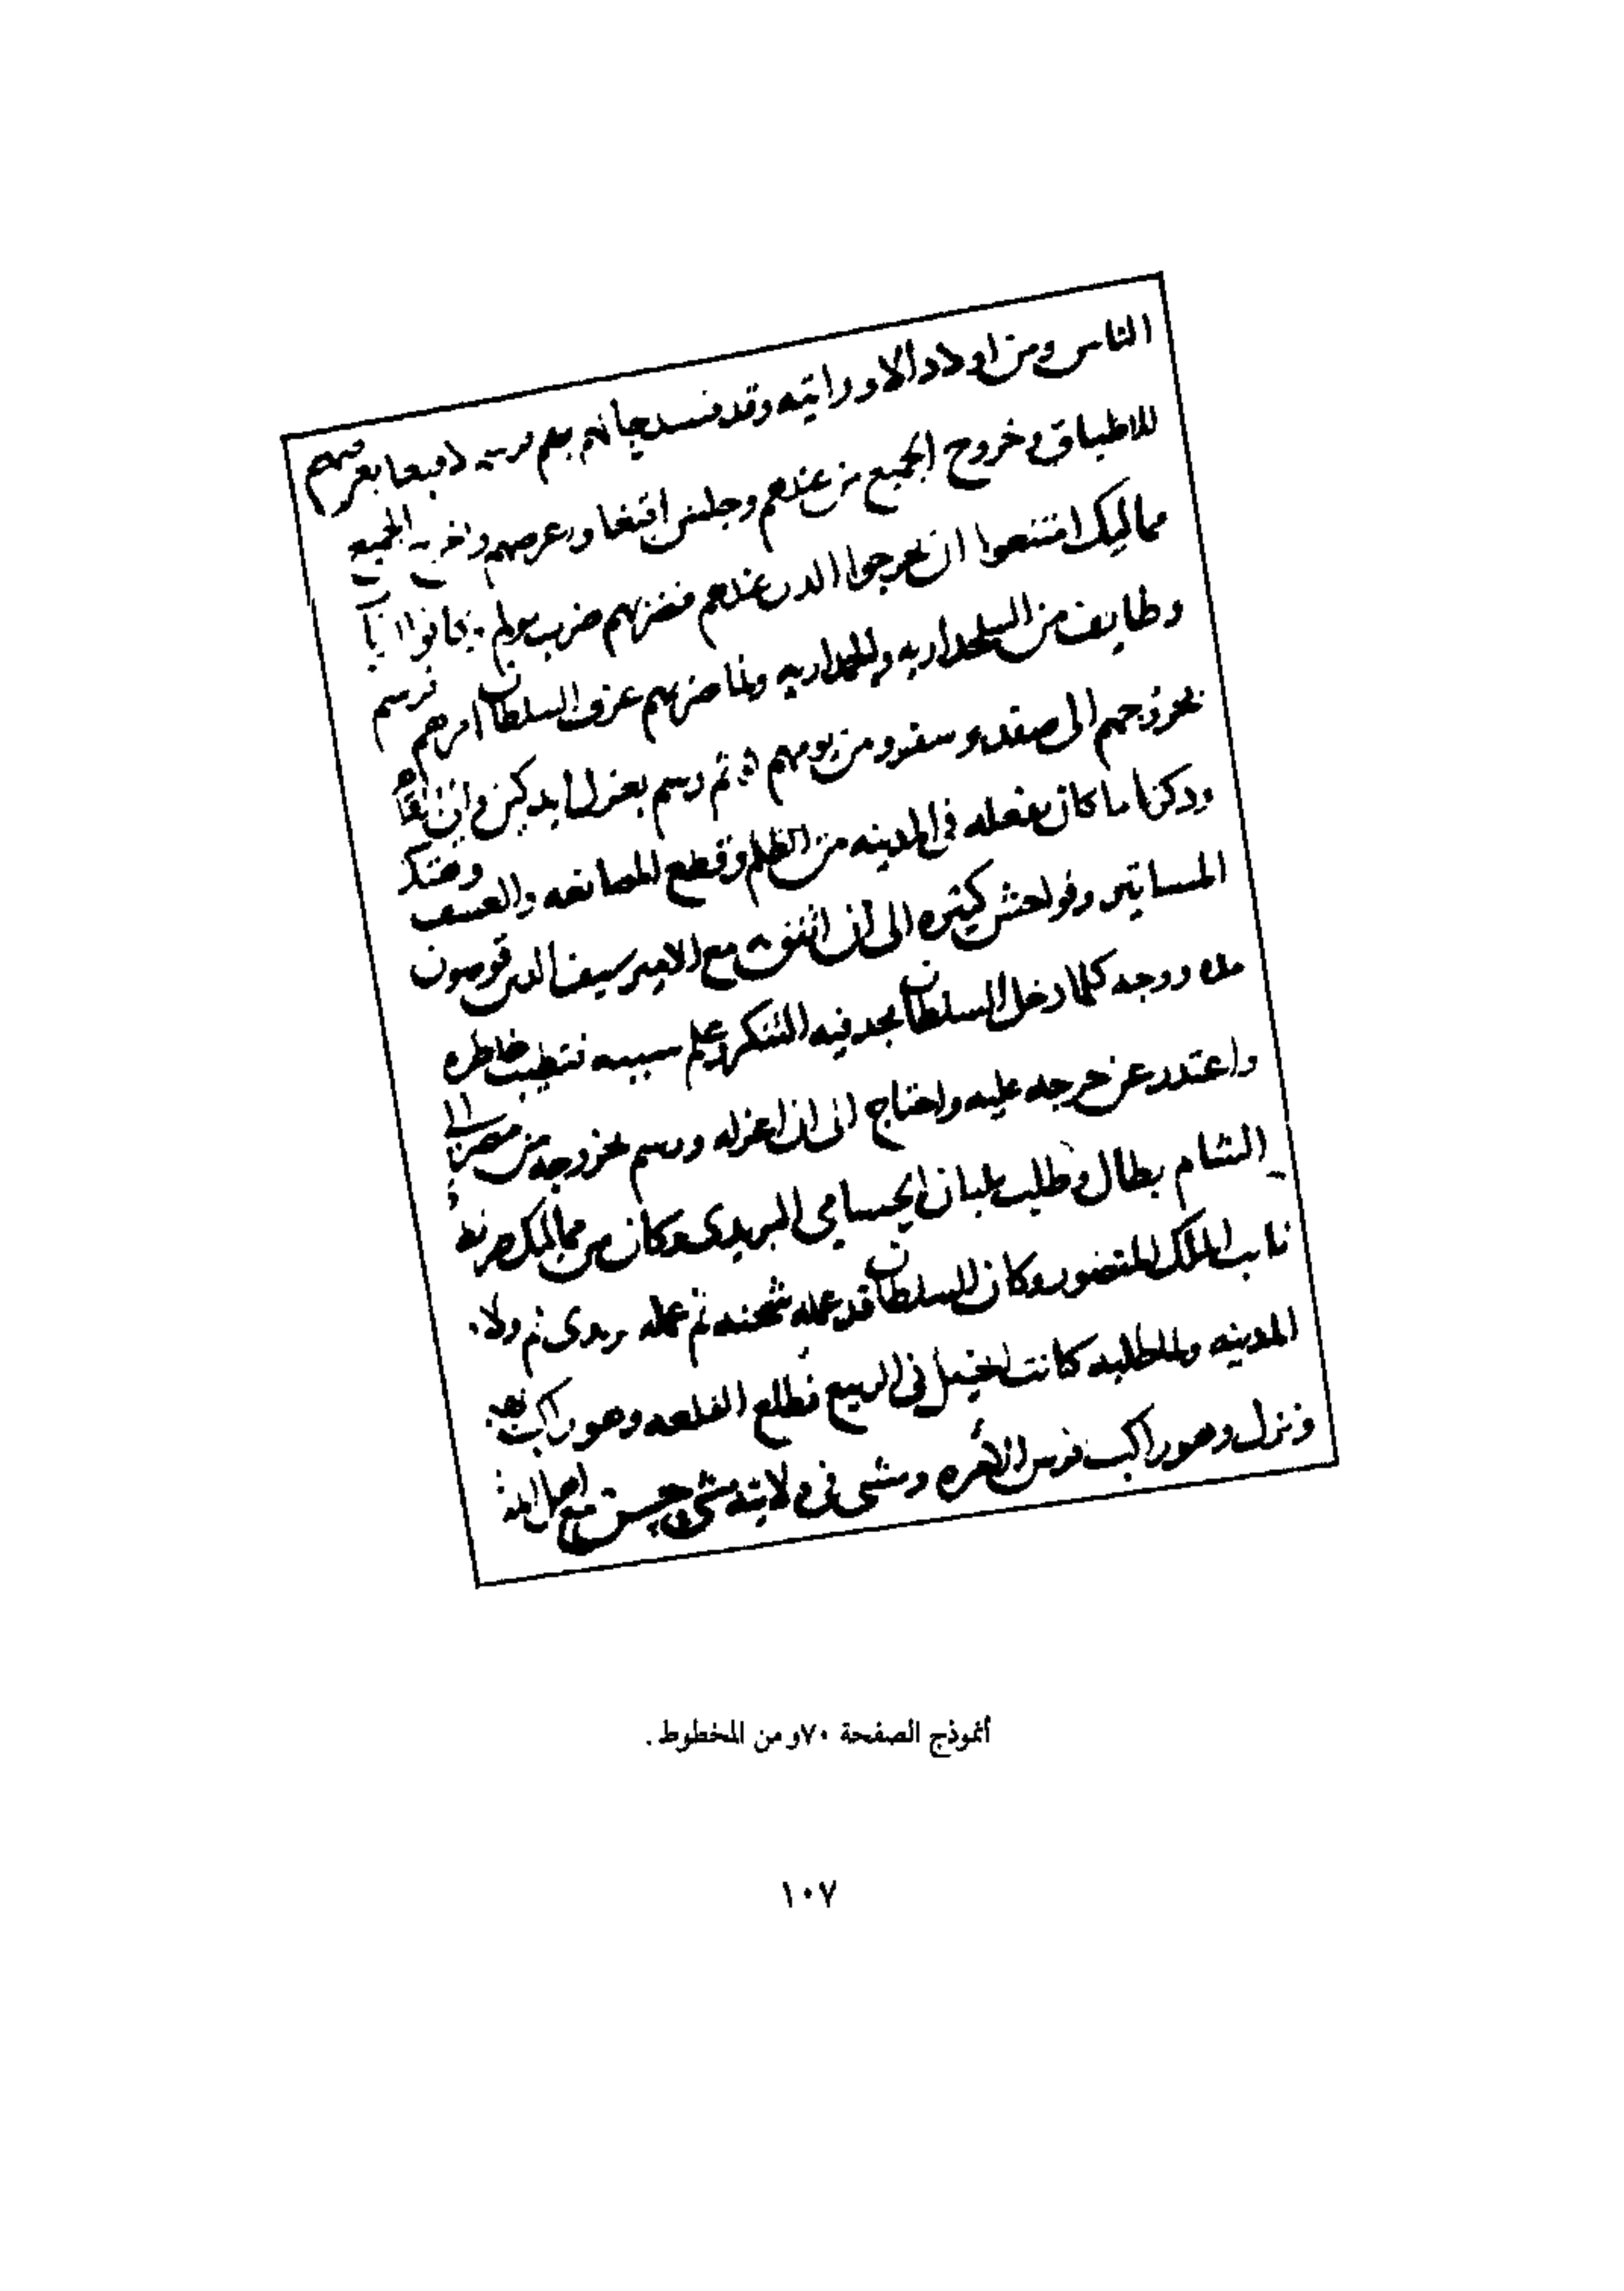 الناس ومن اولاد الاوراتيه وقد فسد حالهم
للاطباق وخروج الجميع من عندهم وجلس اقبغا وعرضهم وضرب الجميع
مماليك امتنعوا ان يخرجوا الذين عندهم فضربهم ضرب مولم وكانوا
وطايفه من السلحداريه والجمداريه ولما ضربهم عرف السلطان امرهم فرسم
بخروجهم الى صفد وسفرو من يومهم ثم رسم بعزل ايدكين
وذكرنا ما كان يفعله في المدينه من الظلم وقطع المصانعه والعسف وهتك
المساتير وفواحش كثيره الى ان اتفق مع الامير سيف الدين قوصون
كلما دخل السلطان يجد فيه التنكر وعلم سببه فتطيب خاطره
واعتذر عن خرجه عليه واحتاج الى ان اعزله ورسم بخروجه من مصر الى
الشام بطال وطلب بلبان الحسامي البريدى وكان من مماليك طرنطا
نايب الملك المنصور وكان السلطان قد عمله شحنه ثم عمله بريدى ثم ولاه
المدينه ولما طلبه كانت الخيل في الربيع فطلع القلعه وهو راكب
ونزل وهو راكب فرس ومشى في ولايته مشى حسن مع اهل المدينه
أنموذج الصفحة ٧٠و من المخطوط.
١٠٧